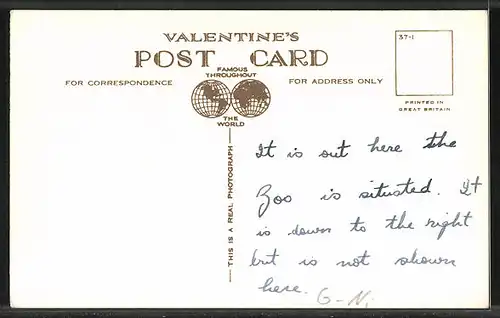 VALENTINE'S
POST CARD
37-1
FAMOUS
THROUGHOUT
FOR CORRESPONDENCE
FOR ADDRESS ONLY
THE
WORLD
PRINTED IN
GREAT BRITAIN
THIS IS A REAL PHOTOGRAPH
It is out here the
Zoo is situated. It
is down to the right
but is not shown
here. G-Ni